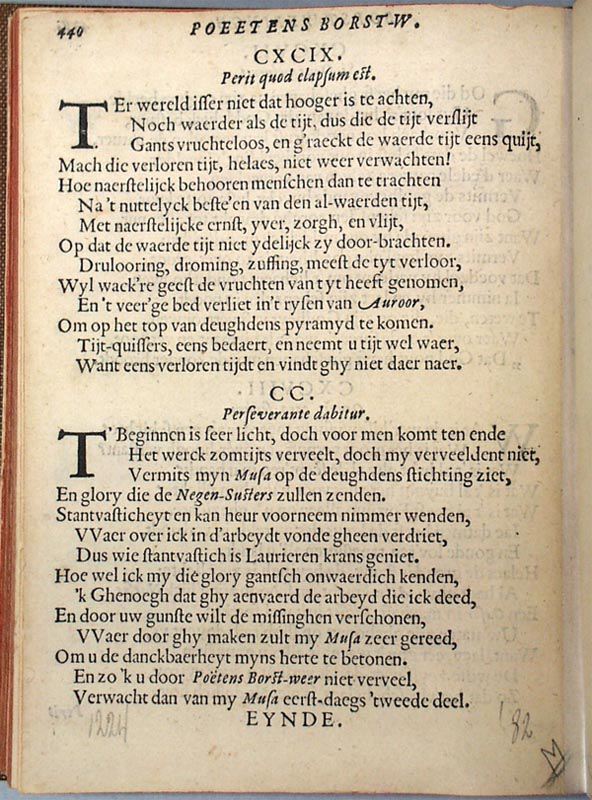 440
POEETENS BORST-W.
CXCIX.
Perit quod elapſum eſt.
TEr wereld iſſer niet dat hooger is te achten,
Noch waerder als de tijt, dus die de tijt verſlijt
Gants vruchteloos, en g'raeckt de waerde tijt eens quijt,
Mach die verloren tijt, helaes, niet weer verwachten!
Hoe naerſtelijck behooren menſchen dan te trachten
Na 't nuttelyck beſte'en van den al-waerden tijt,
Met naerſtelijcke ernſt, yver, zorgh, en vlijt,
Op dat de waerde tijt niet ydelijck zy door-brachten.
Drulooring, droming, zuffing, meeſt de tyt verloor,
Wyl wack're geeſt de vruchten van tyt heeft genomen,
En 't veer'ge bed verliet in't ryſen van Auroor,
Om op het top van deughdens pyramyd te komen.
Tijt-quiſſers, eens bedaert, en neemt u tijt wel waer,
Want eens verloren tijdt en vindt ghy niet daer naer.
CC.
Perſeverante dabitur.
T'Beginnen is ſeer licht, doch voor men komt ten ende
Het werck zomtijts verveelt, doch my verveeldent niet,
Vermits myn Muſa op de deughdens ſtichting ziet,
En glory die de Negen-Suſters zullen zenden.
Stantvaſticheyt en kan heur voorneem nimmer wenden,
VVaer over ick in d'arbeydt vonde gheen verdriet,
Dus wie ſtantvaſtich is Laurieren krans geniet.
Hoe wel ick my die glory gantſch onwaerdich kenden,
'k Ghenoegh dat ghy aenvaerd de arbeyd die ick deed,
En door uw gunſte wilt de miſſinghen verſchonen,
VVaer door ghy maken zult my Muſa zeer gereed,
Om u de danckbaerheyt myns herte te betonen.
En zo 'k u door Poëtens Borſt-weer niet verveel,
Verwacht dan van my Muſa eerſt-daegs 'tweede deel.
EYNDE.
1224
82